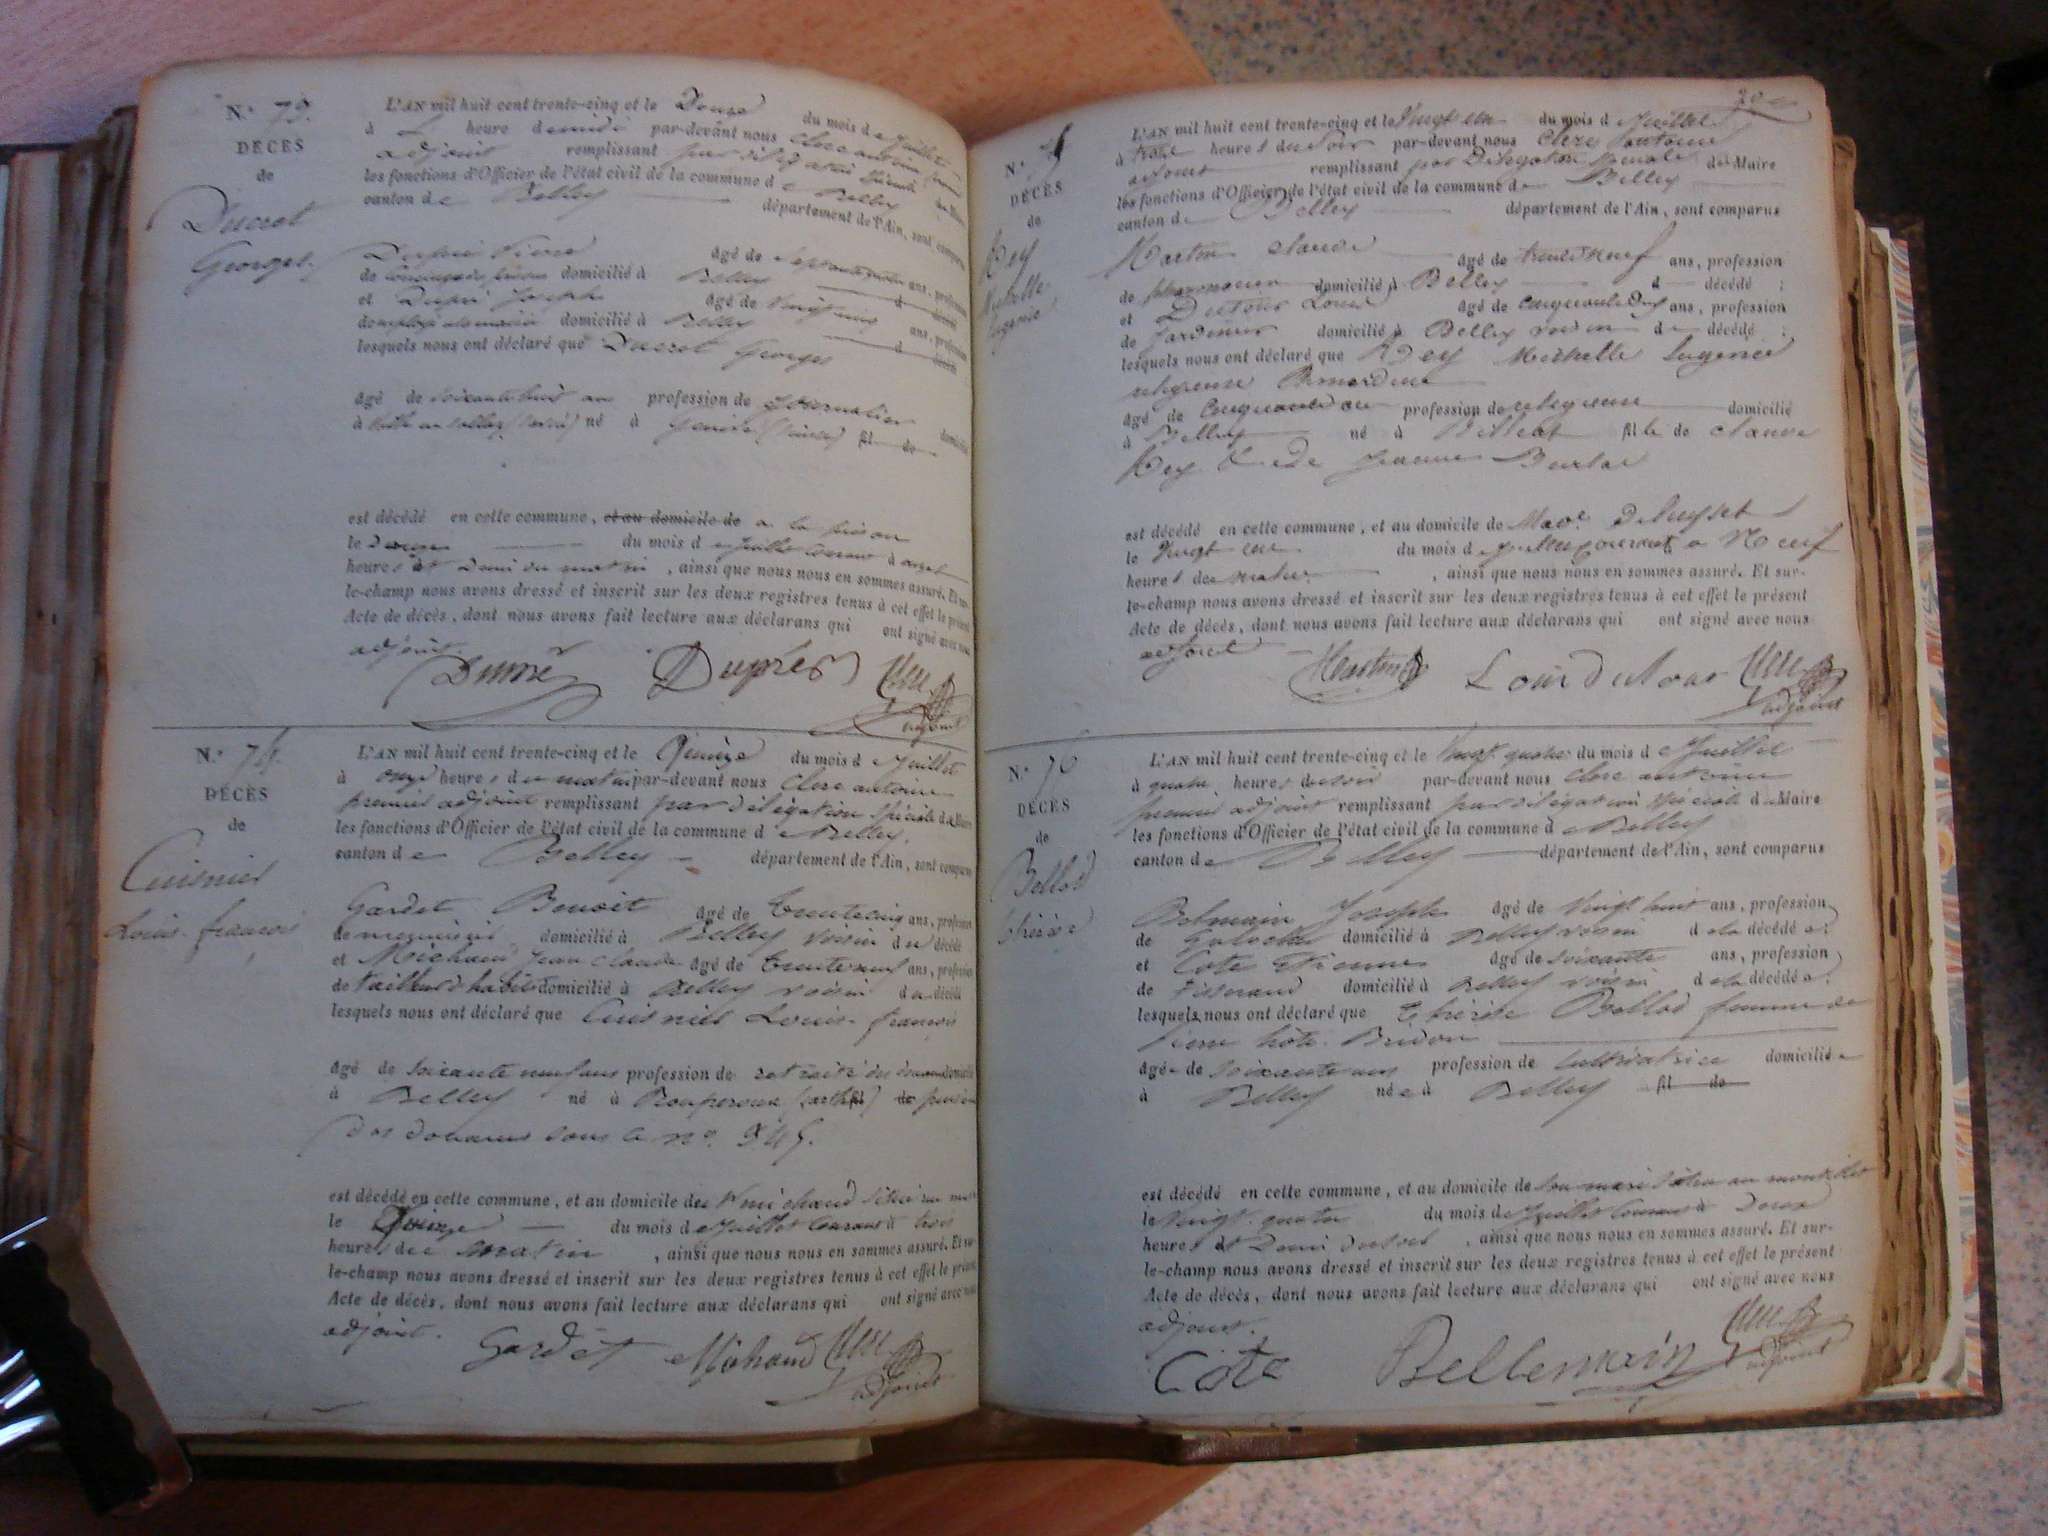 N.° 73.
DÉCÈS
de
Ducrot
Georges.
L'AN mil huit cent trente-cinq et le Douze du mois de Juillet
à heure de midi par-devant nous Clerc antoine
adjoint remplissant par délégation du Maire
les fonctions d'Officier de l'état civil de la commune de Belley
canton de Belley département de l'Ain, sont comparus
Dupré Pierre âgé de ans, profession
de domicilié à Belley d décédé
et Dupré Joseph âgé de vingt ans, profession
domicilié à Belley d décédé
lesquels nous ont déclaré que Ducrot Georges
âgé de soixante huit ans profession de journalier domicilié
à né à fil de
est décédé en cette commune, et au domicile de a la prison
le Douze du mois de Juillet courant à onze
heures et Demi du matin, ainsi que nous nous en sommes assuré. Et sur-
le-champ nous avons dressé et inscrit sur les deux registres tenus à cet effet le présent
Acte de décès, dont nous avons fait lecture aux déclarans qui ont signé avec nous
adjoint.
Dupré Dupré Clerc
adjoint
N.° 74.
DÉCÈS
de
Cuisniel
Louis-françois
L'AN mil huit cent trente-cinq et le Quinze du mois de Juillet
à onze heures du matin par-devant nous Clerc antoine
premier adjoint remplissant par délégation spéciale du Maire
les fonctions d'Officier de l'état civil de la commune de Belley,
canton de Belley département de l'Ain, sont comparus
Gardet Benoit âgé de trente cinq ans, profession
de menuisier domicilié à Belley voisin du décédé
et Michaud Jean Claude âgé de trente neuf ans, profession
de tailleur d'habits domicilié à Belley voisin du décédé
lesquels nous ont déclaré que Cuisniel Louis-françois
âgé de soixante neuf ans profession de retraité des domicilié
à Belley né à fil de pension
des douanes sous le n.° 945.
est décédé en cette commune, et au domicile de michaud situé
le Quinze du mois de Juillet courant à trois
heures du matin, ainsi que nous nous en sommes assuré. Et sur-
le-champ nous avons dressé et inscrit sur les deux registres tenus à cet effet le présent
Acte de décès, dont nous avons fait lecture aux déclarans qui ont signé avec nous
adjoint.
Gardet Michaud Clerc
adjoint
20
N.° 75
DÉCÈS
de
Rey
Michelle
Eugenie
L'AN mil huit cent trente-cinq et le Vingt un du mois de Juillet
à trois heures du soir par-devant nous Clerc antoine
adjoint remplissant par Délégation spéciale du Maire
les fonctions d'Officier de l'état civil de la commune de Belley
canton de Belley département de l'Ain, sont comparus
Martin claude âgé de trente neuf ans, profession
de pharmacien domicilié à Belley d décédé ;
et Dutour Louis âgé de cinquante six ans, profession
de Jardinier domicilié à Belley voisin de décédé ;
lesquels nous ont déclaré que Rey Michelle Eugenie
religieuse Bernardine
âgé de profession de religieuse domicilié
à Belley né à fille de claude
Rey et de Jeanne
est décédé en cette commune, et au domicile de Mad.e
le Vingt un du mois de Juillet courant à Neuf
heures du matin, ainsi que nous nous en sommes assuré. Et sur-
le-champ nous avons dressé et inscrit sur les deux registres tenus à cet effet le présent
Acte de décès, dont nous avons fait lecture aux déclarans qui ont signé avec nous
adjoint
Martin Louis dutour Clerc
adjoint
N.° 76
DÉCÈS
de
Bellod
thérèse
L'AN mil huit cent trente-cinq et le Vingt quatre du mois de Juillet
à quatre heures du soir par-devant nous Clerc antoine
premier adjoint remplissant par délégation spéciale du Maire
les fonctions d'Officier de l'état civil de la commune de Belley
canton de Belley département de l'Ain, sont comparus
Belmain Joseph âgé de Vingt huit ans, profession
de domicilié à Belley voisin de la décédée ;
et Cote Etienne âgé de soixante ans, profession
de tisserand domicilié à Belley voisin de la décédée ;
lesquels nous ont déclaré que thérèse Bellod femme de
âgée de soixante ans profession de cultivatrice domiciliée
à Belley née à Belley fil de
est décédé en cette commune, et au domicile de son mari situé au
le Vingt-quatre du mois de Juillet courant à Deux
heures et Demi du soir, ainsi que nous nous en sommes assuré. Et sur-
le-champ nous avons dressé et inscrit sur les deux registres tenus à cet effet le présent
Acte de décès, dont nous avons fait lecture aux déclarans qui ont signé avec nous
adjoint.
Cote Bellemain Clerc
adjoint